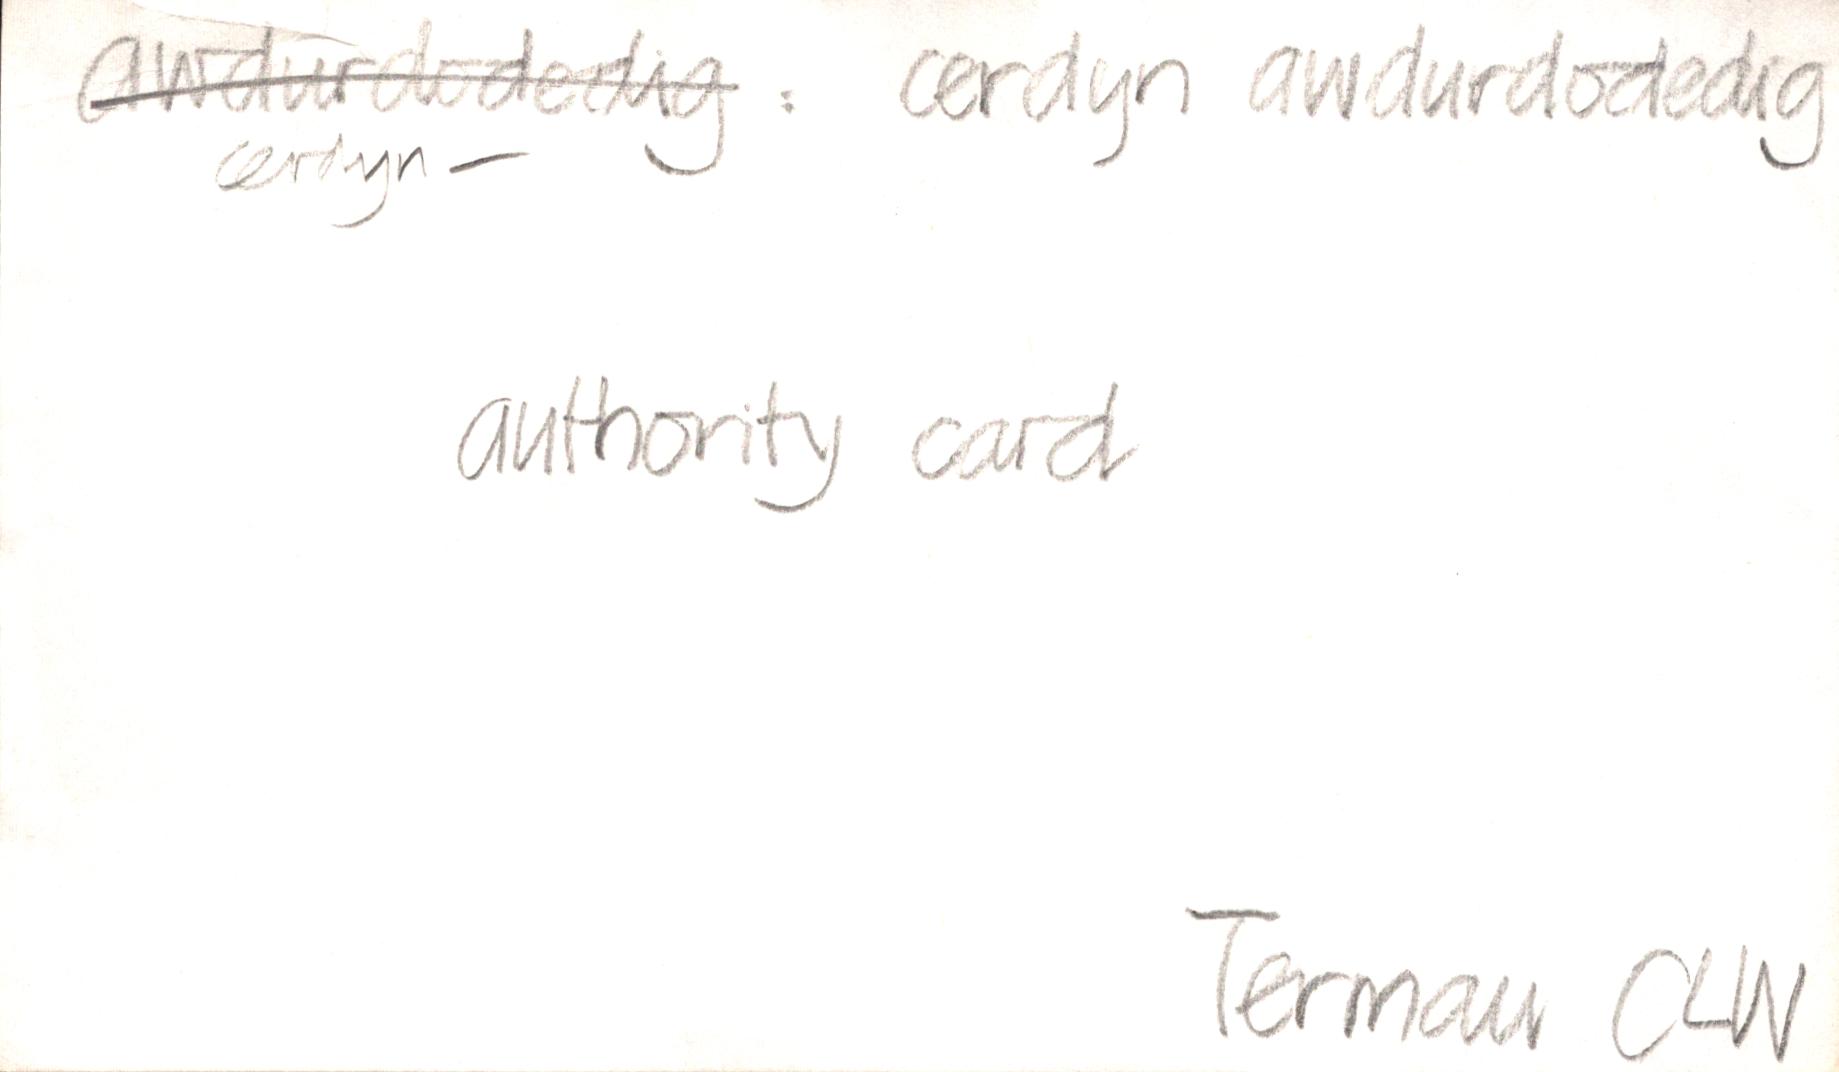 awdurdodedig : cerdyn awdurdodedig
cerdyn —
authority card
Termau CLlW